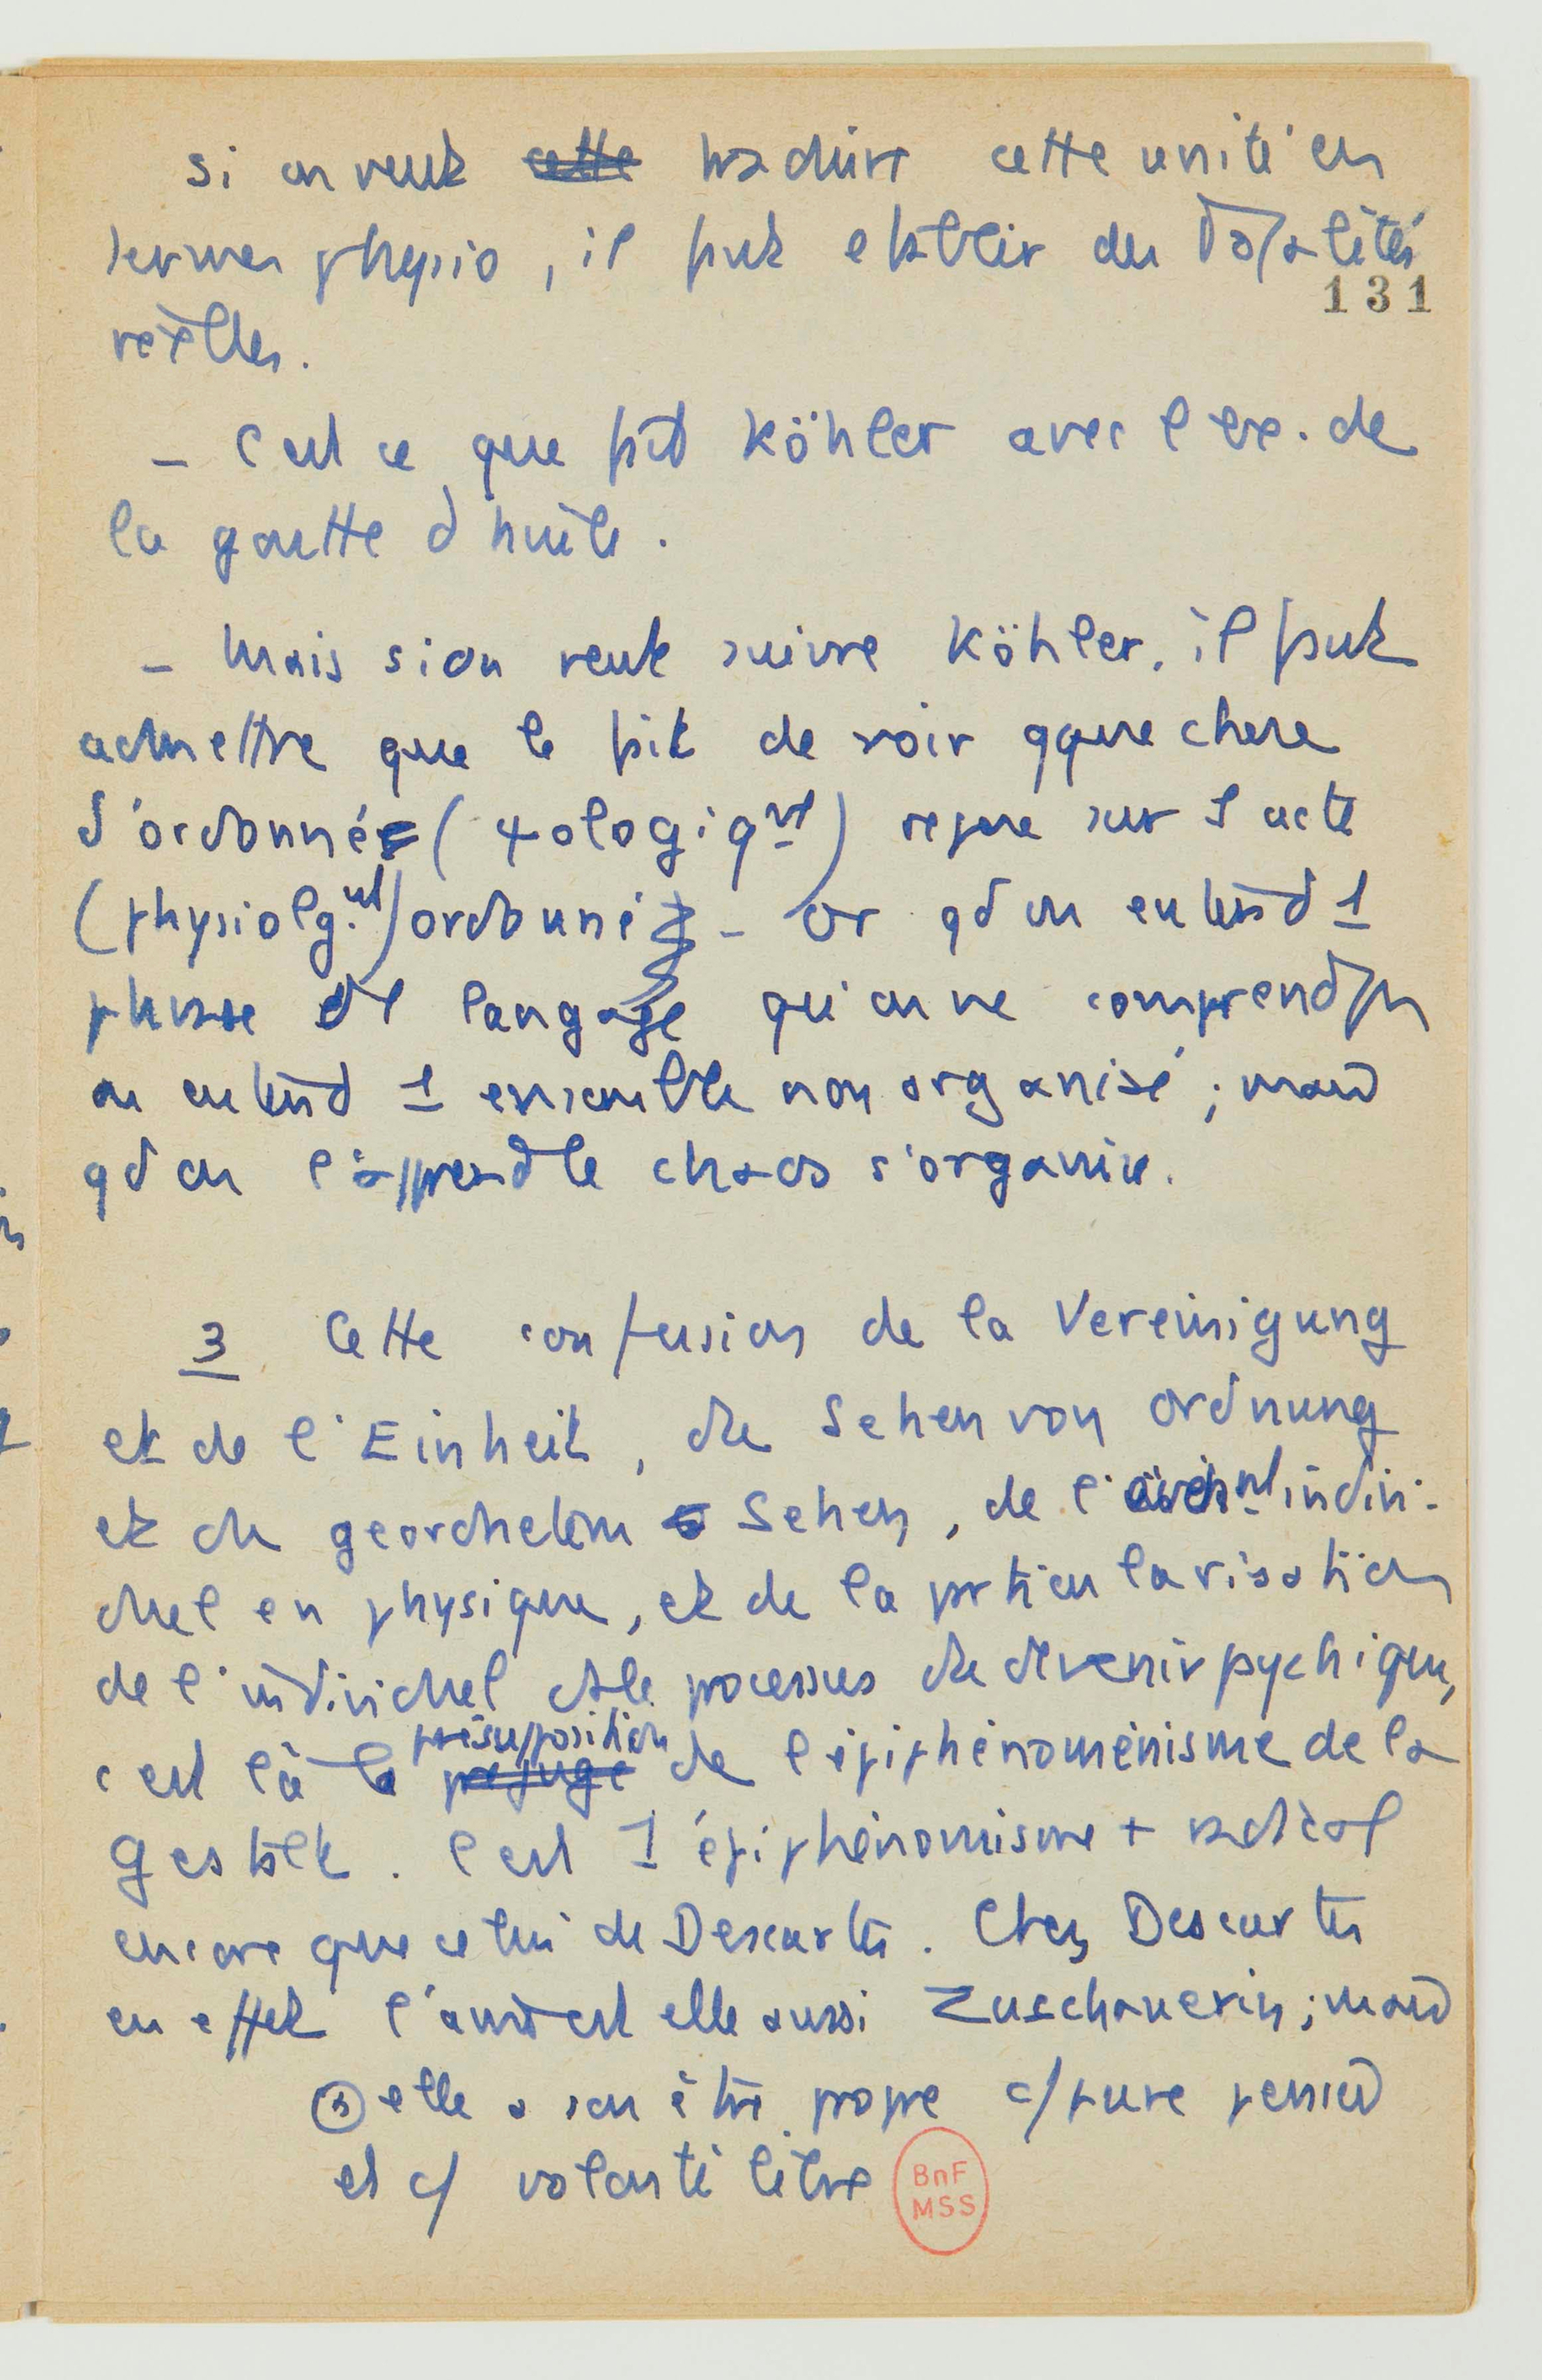 si on veut cette traduire cette unité en
termes physio, il faut établir des Totalités
131
réelles.
– C'est ce que fait Köhler avec l'ex. de
la goutte d'huile.
– Mais si on veut suivre Köhler, il faut
admettre que le fait de voir qque chose
d'ordonné (ψologiqt) repose sur l'acte
(physiolg.nt) ordonné – Or qd on entend 1
phrase de langage qu'on ne comprend pas
on entend 1 ensemble non organisé ; mais
qd on l'apprend le chaos s'organise.
3 Cette confusion de la Vereinigung
et de l'Einheit, du Sehen von Ordnung
et du geordnetem Sehen, de l' indivi-
duel en physique, et de la particularisation
de l'individuel ds le processus du devenir psychique,
présupposition
c'est là le préjugé de l'épiphénoménisme de la
Gestalt. C'est 1 épiphénomisme + radical
encore que celui de Descartes. Chez Descartes
en effet l'âme est elle aussi Zuschauerin ; mais
elle a son être propre c/ pure pensée
et c/ volonté libre
BnF
MSS